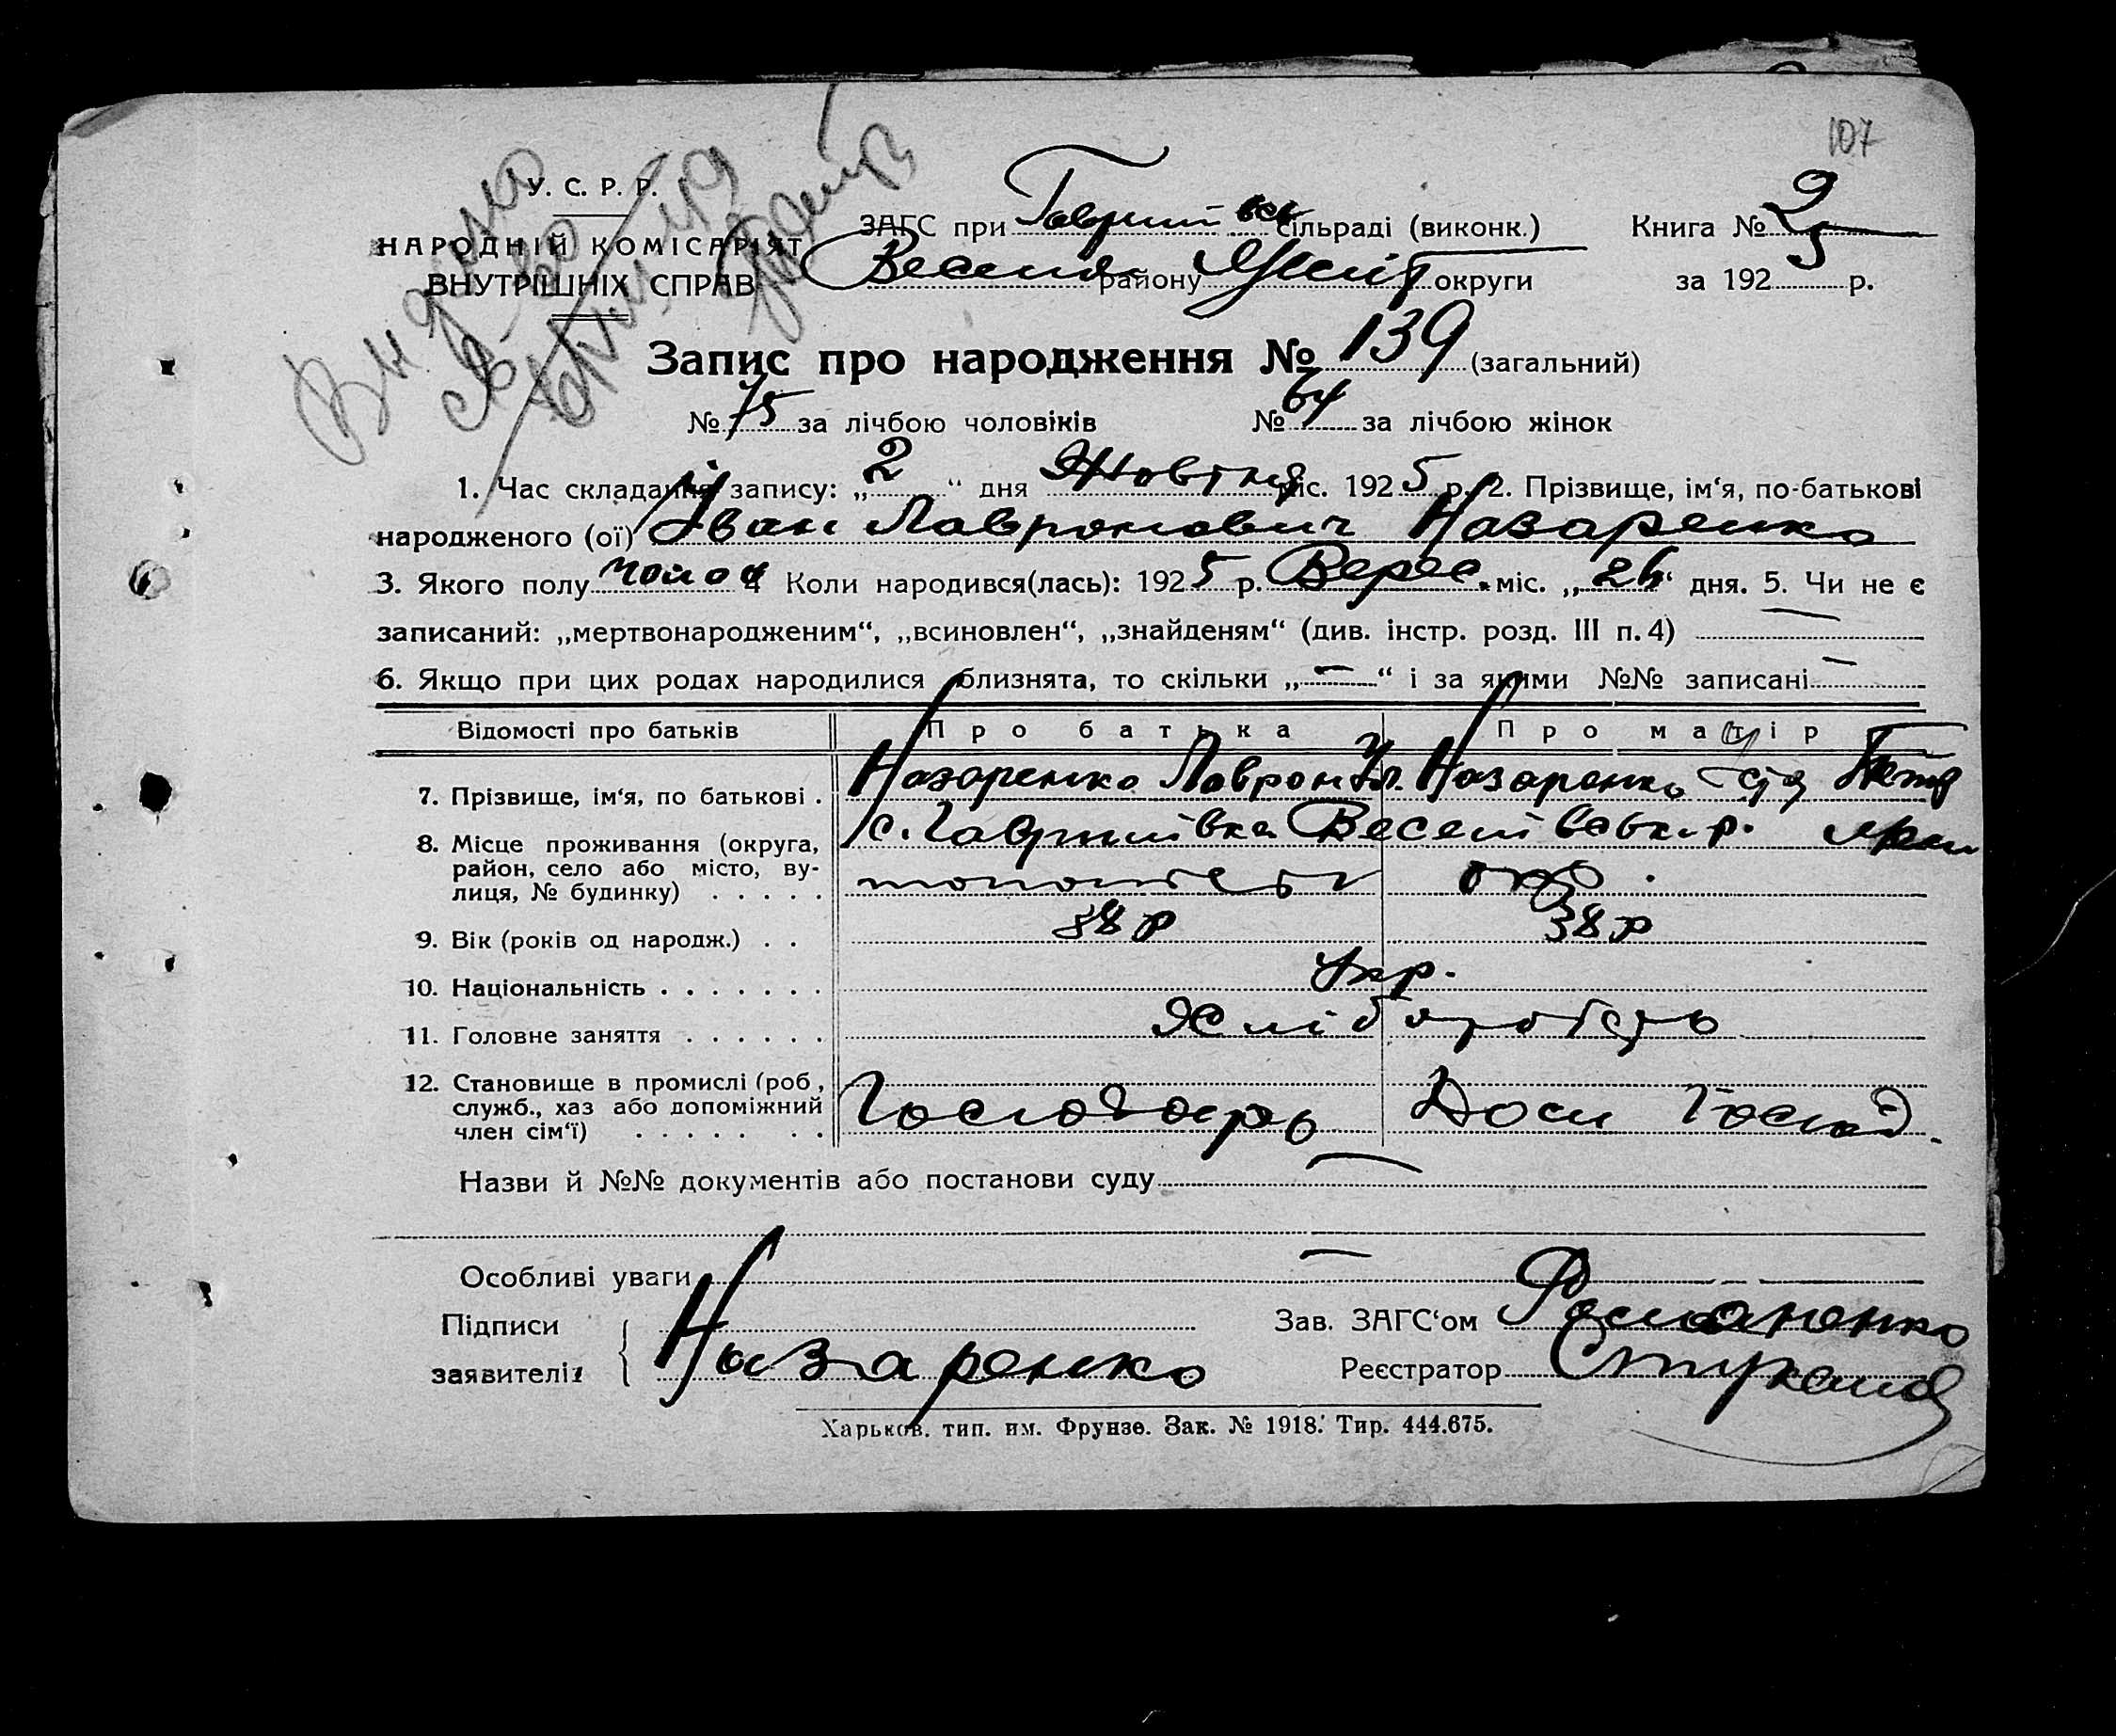 107
У. С. Р. Р.
НАРОДНІЙ КОМІСАРІЯТ
ВНУТРІШНІХ СПРАВ
Видано
ЗАГС при сільраді (виконк.) Книга № 2
району округи за 1925 р.
Запис про народження № 139 (загальний)
№ 75 за лічбою чоловіків № 64 за лічбою жінок
1. Час складання запису: „2“ дня Жовтня міс. 1925 р. 2. Прізвище, ім‘я, по-батькові
народженого (ої) Іван Лавронович Назаренко
3. Якого полу чолов 4 Коли народився(лась): 1925 р. Верес. міс. „26“ дня. 5. Чи не є
записаний: „мертвонародженим“, „всиновлен“, „знайденям“ (див. інстр. розд. III п. 4) —
6. Якщо при цих родах народилися близнята, то скільки „—“ і за якими №№ записані —
Відомості про батьків Про батька Про матір
7. Прізвище, ім‘я, по батькові . Назаренко Назаренко
8. Місце проживання (округа, с. Гаврилівка Веселівськ. р.
район, село або місто, ву-
лиця, № будинку) . . . . . окр.
9. Вік (років од народж.) . . 38 р 38 р
10. Національність . . . . . . . Укр.
11. Головне заняття . . . . . . Хліборобство
12. Становище в промислі (роб., Господарь
служб., хаз або допоміжний
член сім‘ї) . . . . . . .
Назви й №№ документів або постанови суду —
Особливі уваги —
Підписи Зав. ЗАГС‘ом Романенко
заявителів: Назаренко Реєстратор
Харьков. тип. им. Фрунзе. Зак. № 1918. Тир. 444.675.